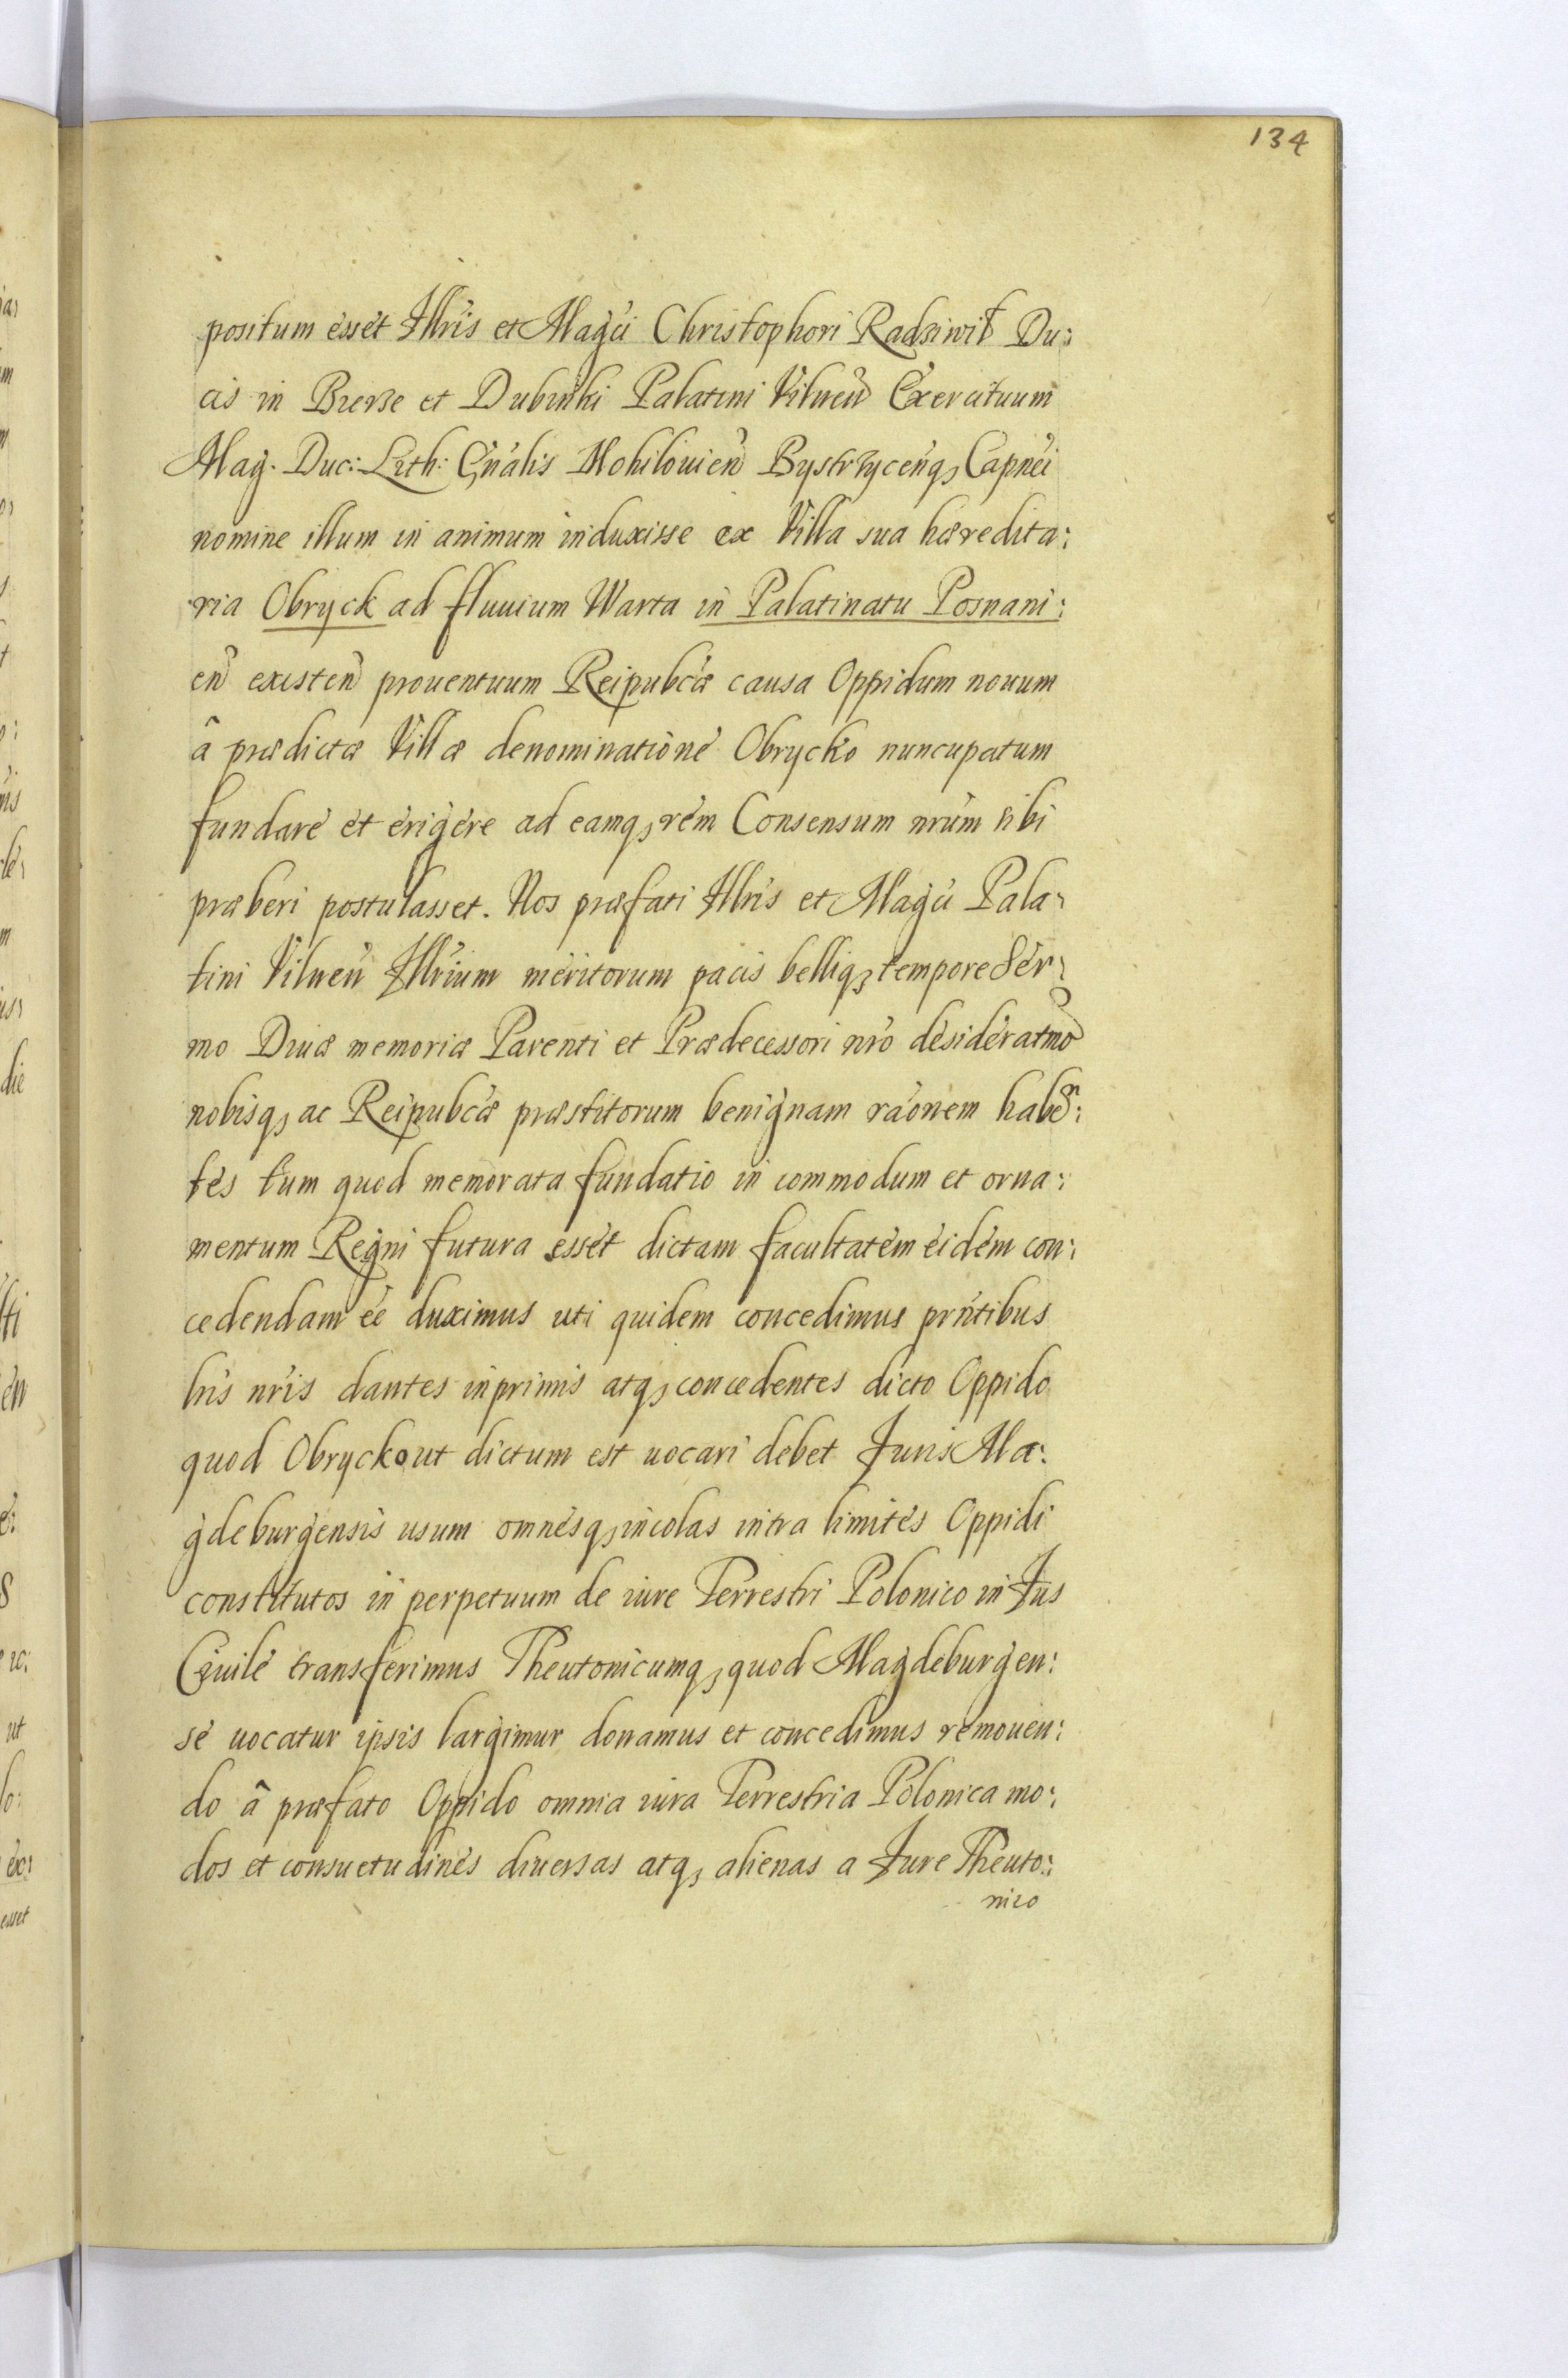 134
positum esset Illris et Magci Christophori Radziwił Du:
cis in Bierze et Dubinki Palatini Vilnen Exercituum
Mag. Duc: Lith: Gnalis Mohilouien Bystrzycenq, Capnei
nomine illum in animum induxisse ex Villa sua hæredita:
ria Obryck ad fluuium Warta in Palatinatu Posnani:
en existen prouentuum Reipubcæ causa Oppidum nouum
â prædictæ Villæ denominatione Obrycko nuncupatum
fundare et erigere ad eamq, rem Consensum nrum sibi
præberi postulasset. Nos præfati Illris et Magci Pala:
tini Vilnen Illrium meritorum pacis belliq, tempore Ser:
mo Diuæ memoriæ Parenti et Prædecessori nro desideratmo
nobisq, ac Reipubcæ præstitorum benignam raonem haben:
tes tum quod memorata fundatio in commodum et orna:
mentum Regni futura esset dictam facultatem eidem con:
cedendam ee duximus uti quidem concedimus prntibus
lris nris dantes inprimis atq, concedentes dicto Oppido
quod Obrycko ut dictum est uocari debet Juris Ma:
gdeburgensis usum omnesq, incolas intra limites Oppidi
constitutos in perpetuum de iure Terrestri Polonico in Jus
Ciuile transferimus Theutonicumq, quod Magdeburgen:
se uocatur ipsis largimur donamus et concedimus remouen:
do â præfato Oppido omnia iura Terrestria Polonica mo:
dos et consuetudines diuersas atq, alienas a Jure Theuto:
nico